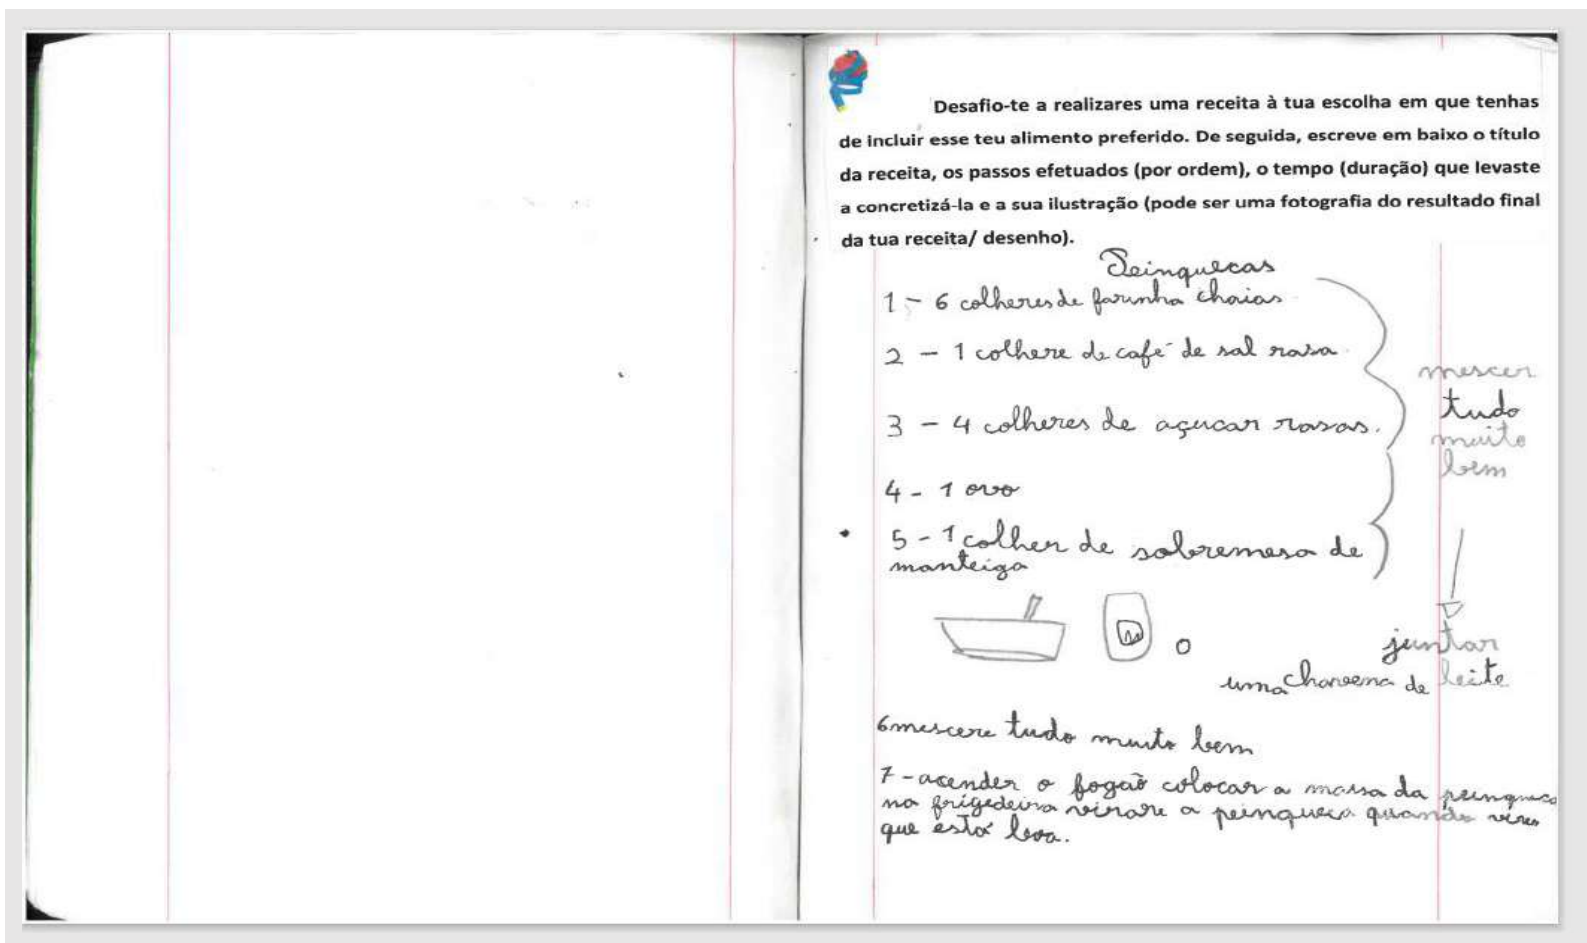 Desafio-te a realizares uma receita à tua escolha em que tenhas
de incluir esse teu alimento preferido. De seguida, escreve em baixo o título
da receita, os passos efetuados (por ordem), o tempo (duração) que levaste
a concretizá-la e a sua ilustração (pode ser uma fotografia do resultado final
da tua receita/ desenho).
Peinquecas
1 - 6 colheres de farinha chaias
2 - 1 colhere de café de sal rasa
3 - 4 colheres de açucar rasas.
4 - 1 ovo
5 - 1 colher de sobremesa de
manteiga
mescer
tudo
muito
bem
juntar
uma chavena de leite
6 mescere tudo muito bem
7 - acender o fogaõ colocar a massa da peinqueca
na frigedeira virare a peinqueca quando vires
que está boa.